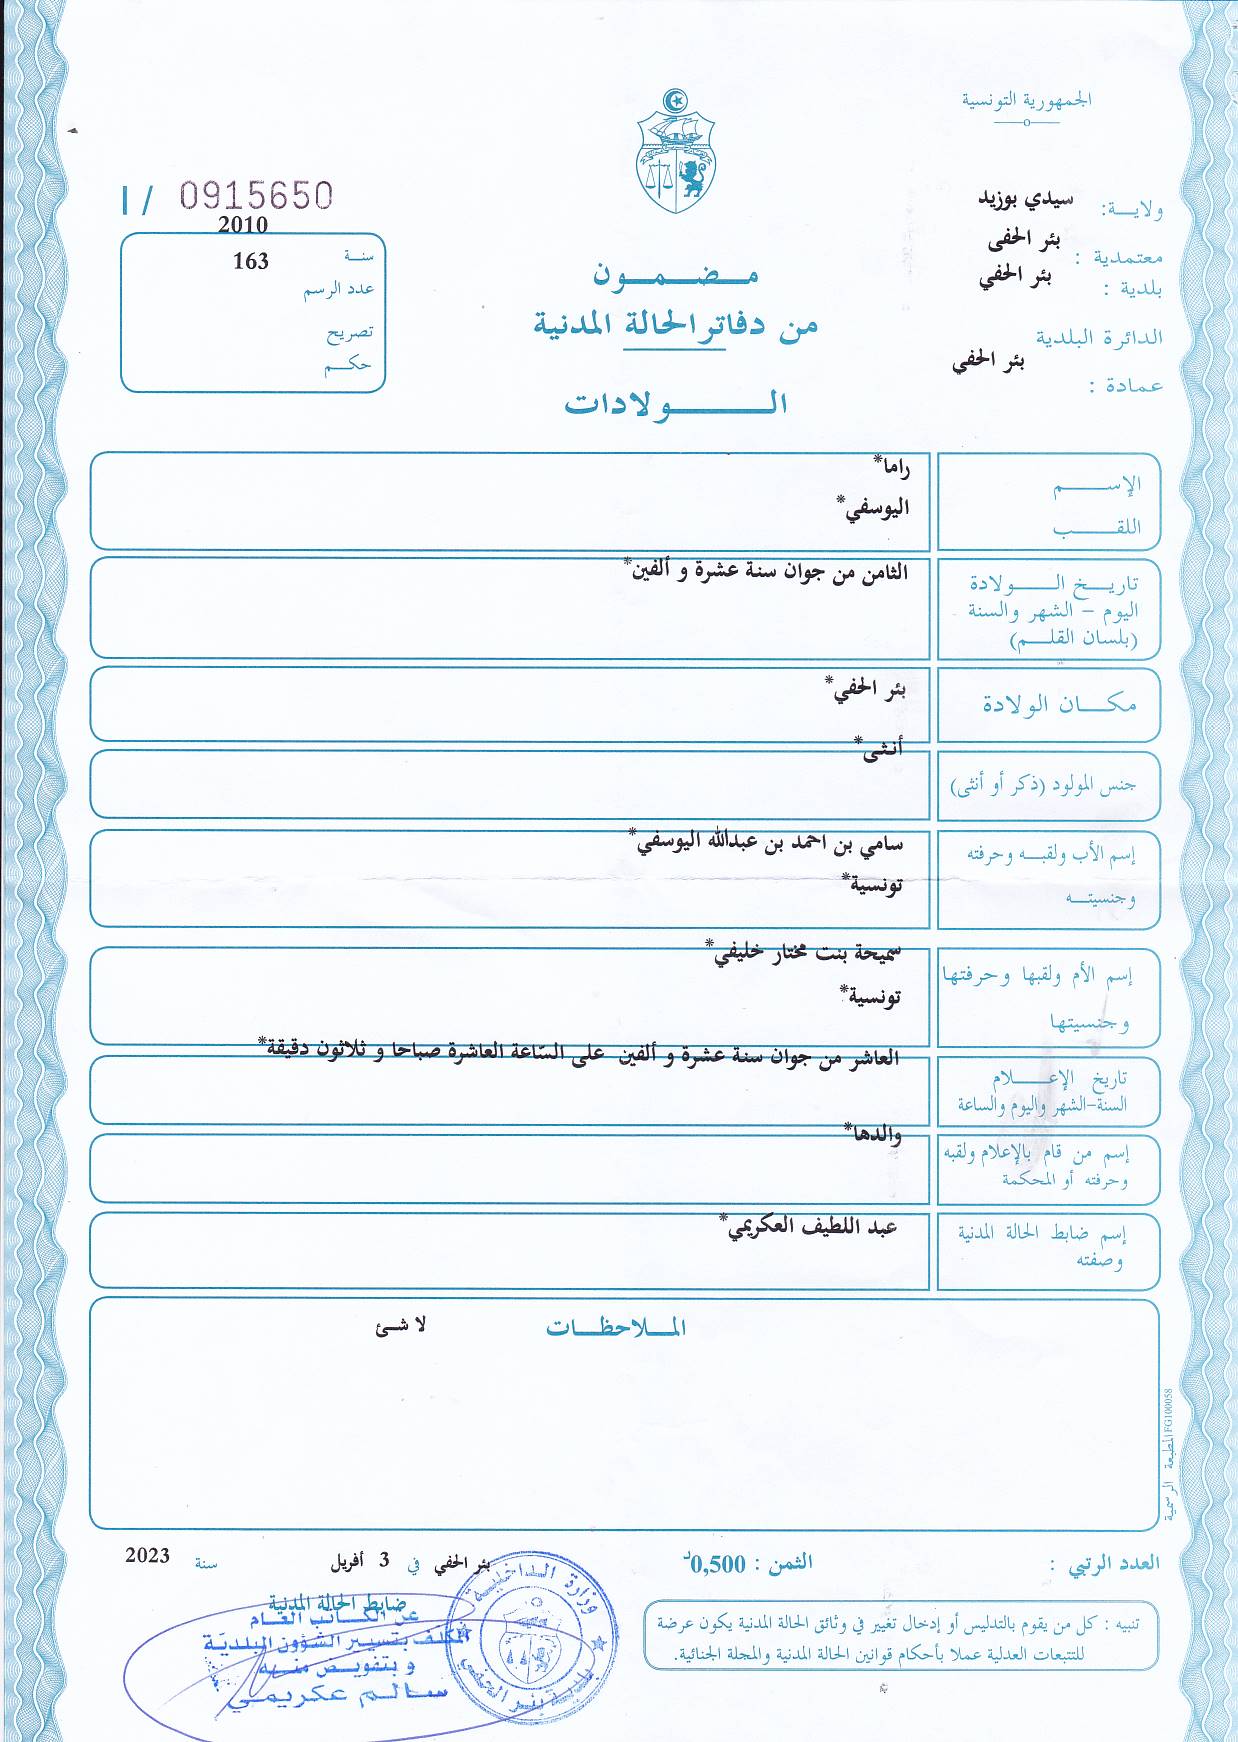 الجمهورية التونسية
ولايـــة: سيدي بوزيد
معتمدية : بئر الحفى
بلدية : بئر الحفي
الدائرة البلدية
بئر الحفي
عمادة :
I / 0915650
2010
سنــة
163
عدد الرسم
تصريح
حكــم
مـضـمـون
من دفاتر الحالة المدنية
الــولادات
الإســـم
راما*
اللقـــب
اليوسفي*
تاريــخ الــولادة
اليوم - الشهر والسنة
(بلسان القلــم)
الثامن من جوان سنة عشرة و ألفين*
مكــان الولادة
بئر الحفي*
جنس المولود (ذكر أو أنثى)
أنثى*
إسم الأب ولقبــه وحرفته
وجنسيتــه
سامي بن احمد بن عبدالله اليوسفي*
تونسية*
إسم الأم ولقبها وحرفتها
وجنسيتها
سميحة بنت مختار خليفي*
تونسية*
تاريخ الإعـــلام
السنة-الشهر واليوم والساعة
العاشر من جوان سنة عشرة و ألفين على السّاعة العاشرة صباحا و ثلاثون دقيقة*
إسم من قام بالإعلام ولقبه
وحرفته أو المحكمة
والدها*
إسم ضابط الحالة المدنية
وصفته
عبد اللطيف العكريمي*
المــلاحظــات
لا شئ
المطبعة الرسمية FG100058
العدد الرتبي :
الثمن : 0,500د
بئر الحفي في 3 أفريل سنة 2023
تنبيه : كل من يقوم بالتدليس أو إدخال تغيير في وثائق الحالة المدنية يكون عرضة
للتتبعات العدلية عملا بأحكام قوانين الحالة المدنية والمجلة الجنائية.
ضابط الحالة المدنية
عن الكاتب العام
المكلف بتسيير الشؤون البلدية
و بتفويض منه
سالم عكريمي
وزارة الداخلية
بلدية بئر الحفي